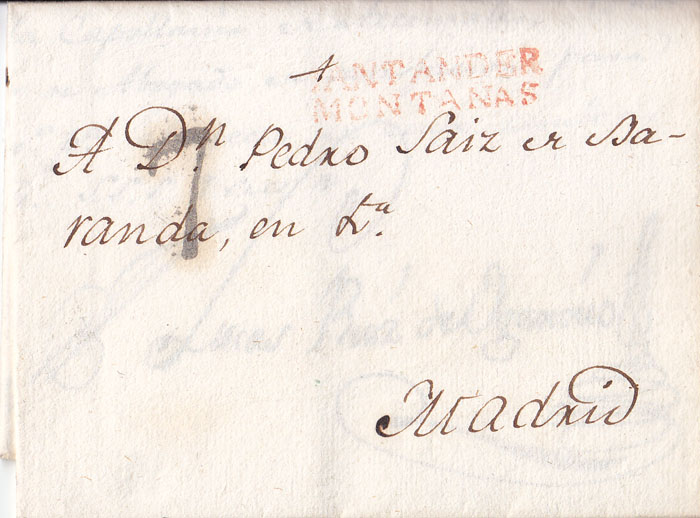 SANTANDER
MONTAÑAS
7
A Dn. Pedro Saiz de Ba-
randa, en
Madrid